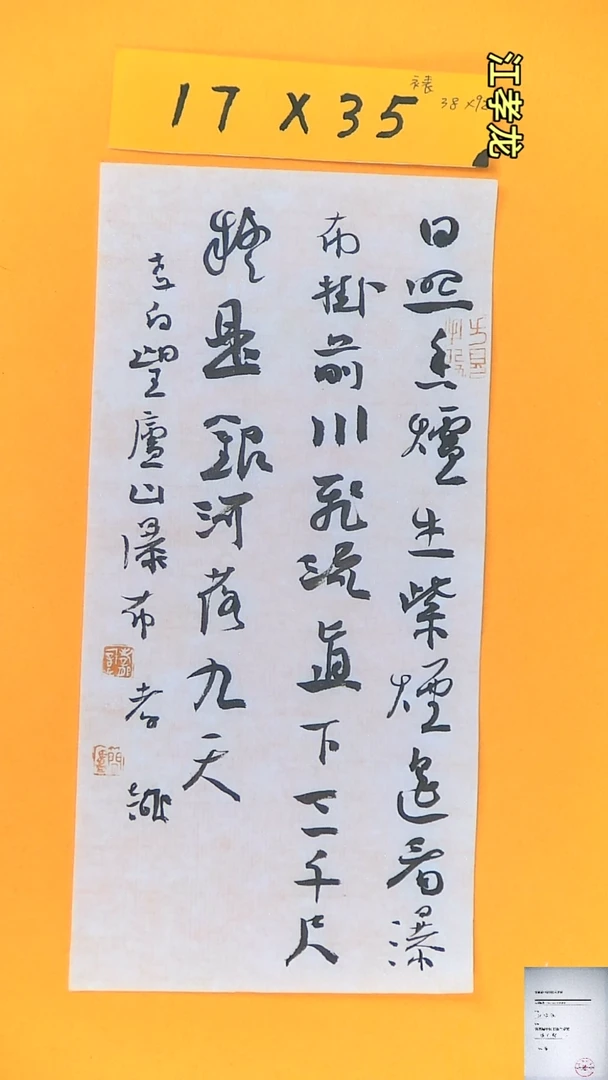 17 X 35
裱
38×92
江孝龙
日照香爐生紫煙遙看瀑
布掛前川飛流直下三千尺
疑是銀河落九天
李白望廬山瀑布 孝龍